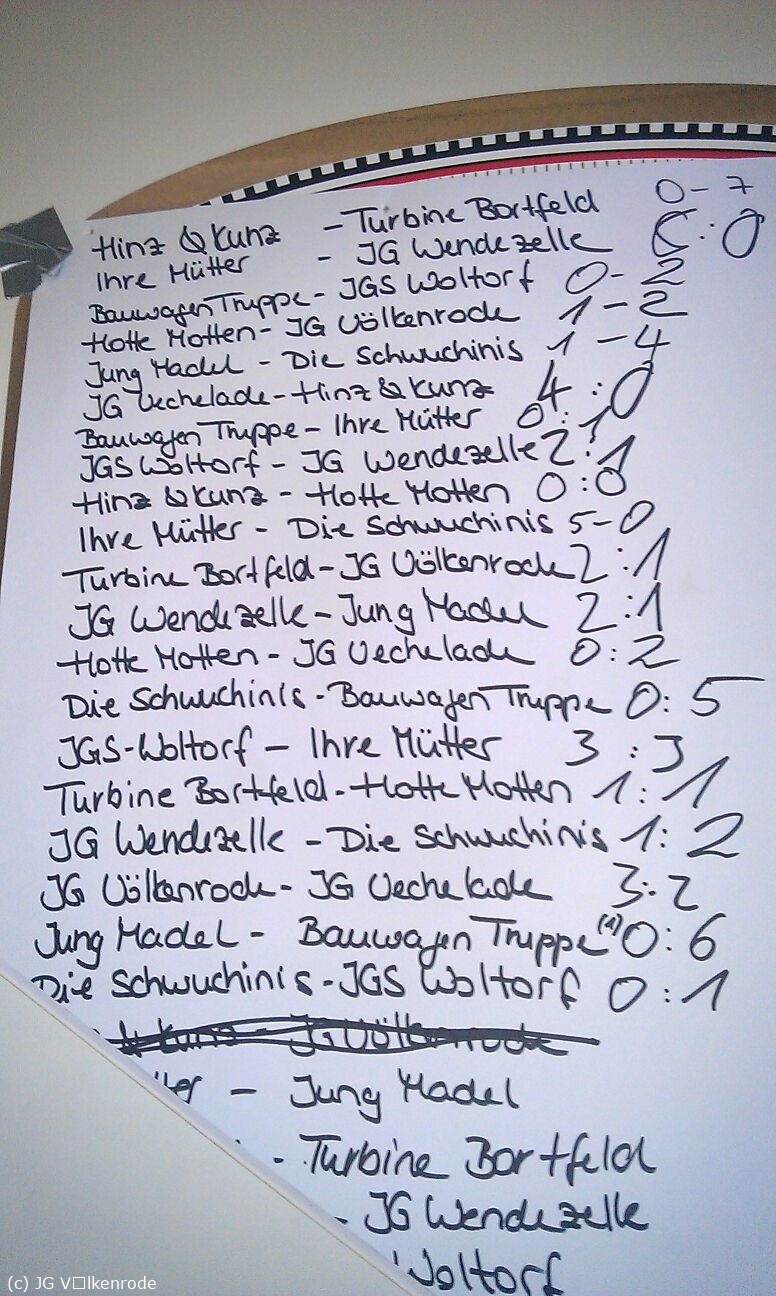 Hinz & Kunz - Turbine Bortfeld 0-7
Ihre Mütter - JG Wendezelle :0
BauwagenTruppe - JGS Woltorf 0-2
Hotte Motten - JG Völkenrode 1-2
Jung Madel - Die Schwuchinis 1-4
JG Vechelade - Hinz & Kunz 4:0
Bauwagen Truppe - Ihre Mütter 0:1
JGS Woltorf - JG Wendezelle 2:1
Hinz & Kunz - Hotte Motten 0:0
Ihre Mütter - Die Schwuchinis 5-0
Turbine Bortfeld - JG Völkenrode 2:1
JG Wendezelle - Jung Madel 2:1
Hotte Motten - JG Vechelade 0:2
Die Schwuchinis - Bauwagen Truppe 0:5
JGS-Woltorf - Ihre Mütter 3:3
Turbine Bortfeld - Hotte Motten 1:1
JG Wendezelle - Die Schwuchinis 1:2
JG Völkenrode - JG Vechelade 3:2
Jung Madel - Bauwagen Truppe (1) 0:6
Die Schwuchinis - JGS Woltorf 0:1
& Kunz - JG Völkenrode
tter - Jung Madel
- Turbine Bortfeld
- JG Wendezelle
Woltorf
(c) JG V□lkenrode